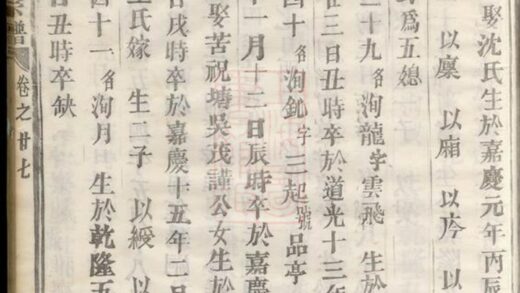 娶沈氏生於嘉慶元年丙辰
以廩 以廂 以庈 以
郎爲五媳
三十九 名洵龍字雲飛 生於
在三日丑時卒於道光十三年
四十 名洵釓字三起號品亭
十一月十三日辰時卒於嘉慶
娶苦祝塘吳茂謹公女生於
日戌時卒於嘉慶十五年二月
王氏嫁 生二子 以綬 以
四十一 名洵月 生於乾隆五
日丑時卒缺
譜 卷之廿七